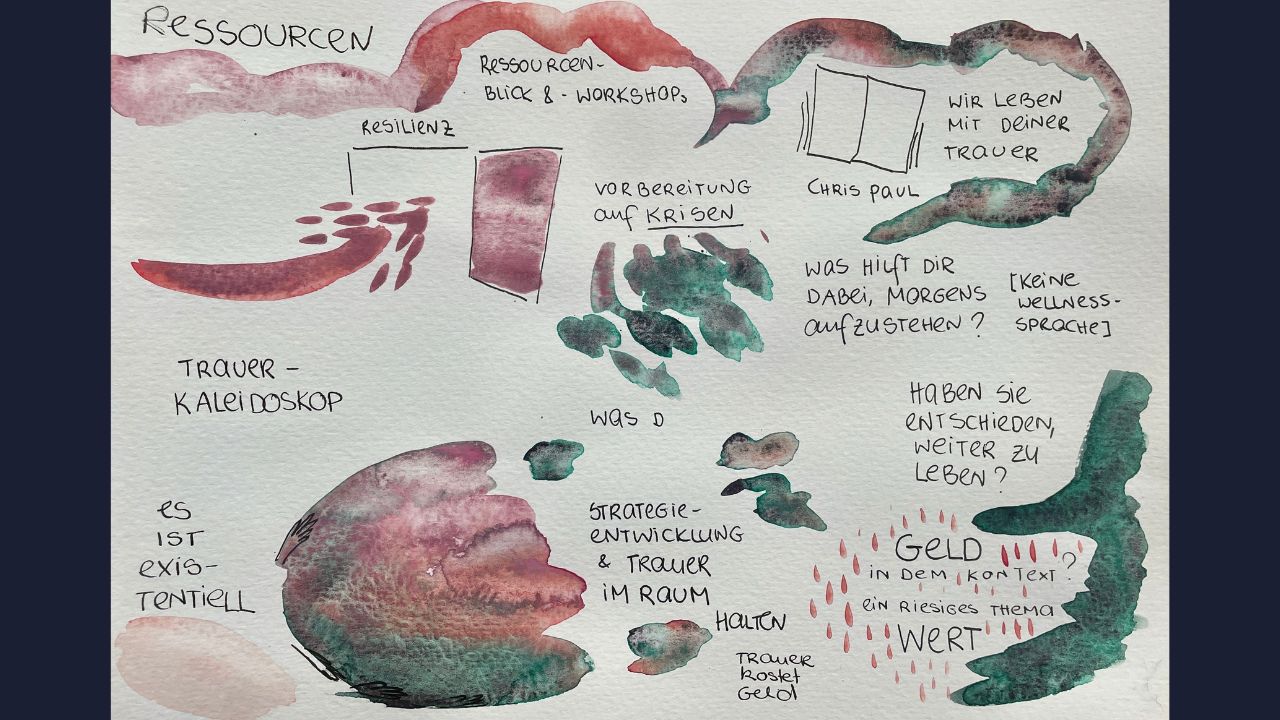 RESSOURCEN
RESSOURCEN-
BLICK & - WORKSHOPS
RESILIENZ
WIR LEBEN
MIT DEINER
TRAUER
CHRIS PAUL
VORBEREITUNG
auf KRISEN
WAS HILFT DIR
DABEI, MORGENS
aufZUSTEHEN?
[KEINE
WELLNESS-
SPRACHE]
TRAUER-
KALEIDOSKOP
WAS D
HABEN SIE
ENTSCHIEDEN,
WEITER ZU
LEBEN?
ES
IST
EXIS-
TENTIELL
STRATEGIE-
ENTWICKLUNG
& TRAUER
IM RAUM
HALTEN
TRAUER
kostet
Geld
GELD
IN DEM KONTEXT?
EIN RIESIGES THEMA
WERT